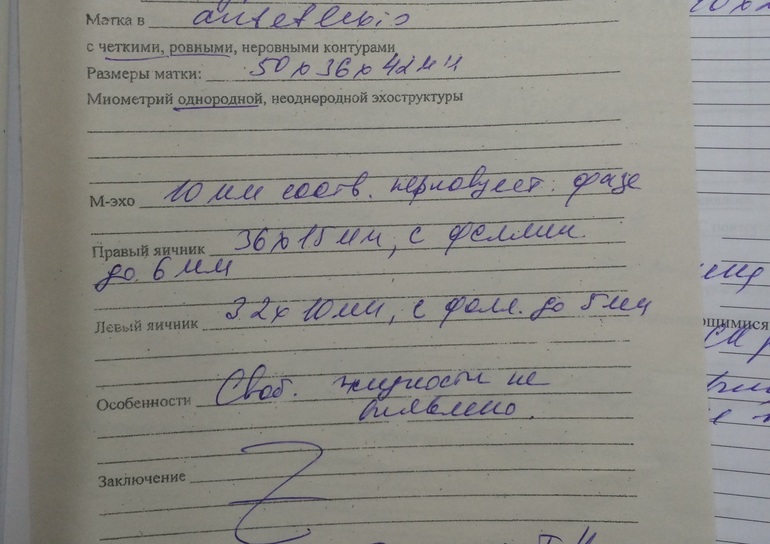 Матка в anteflexio
с четкими, ровными, неровными контурами
Размеры матки: 50 х 36 х 42 мм
Миометрий однородной, неоднородной эхоструктуры
М-эхо 10 мм соотв. фазе
Правый яичник 36х15 мм, с
до 6 мм
Левый яичник 32х10 мм, с фолл. до 5 мм
Особенности Своб. жидкости не
выявлено.
Заключение
ощимися